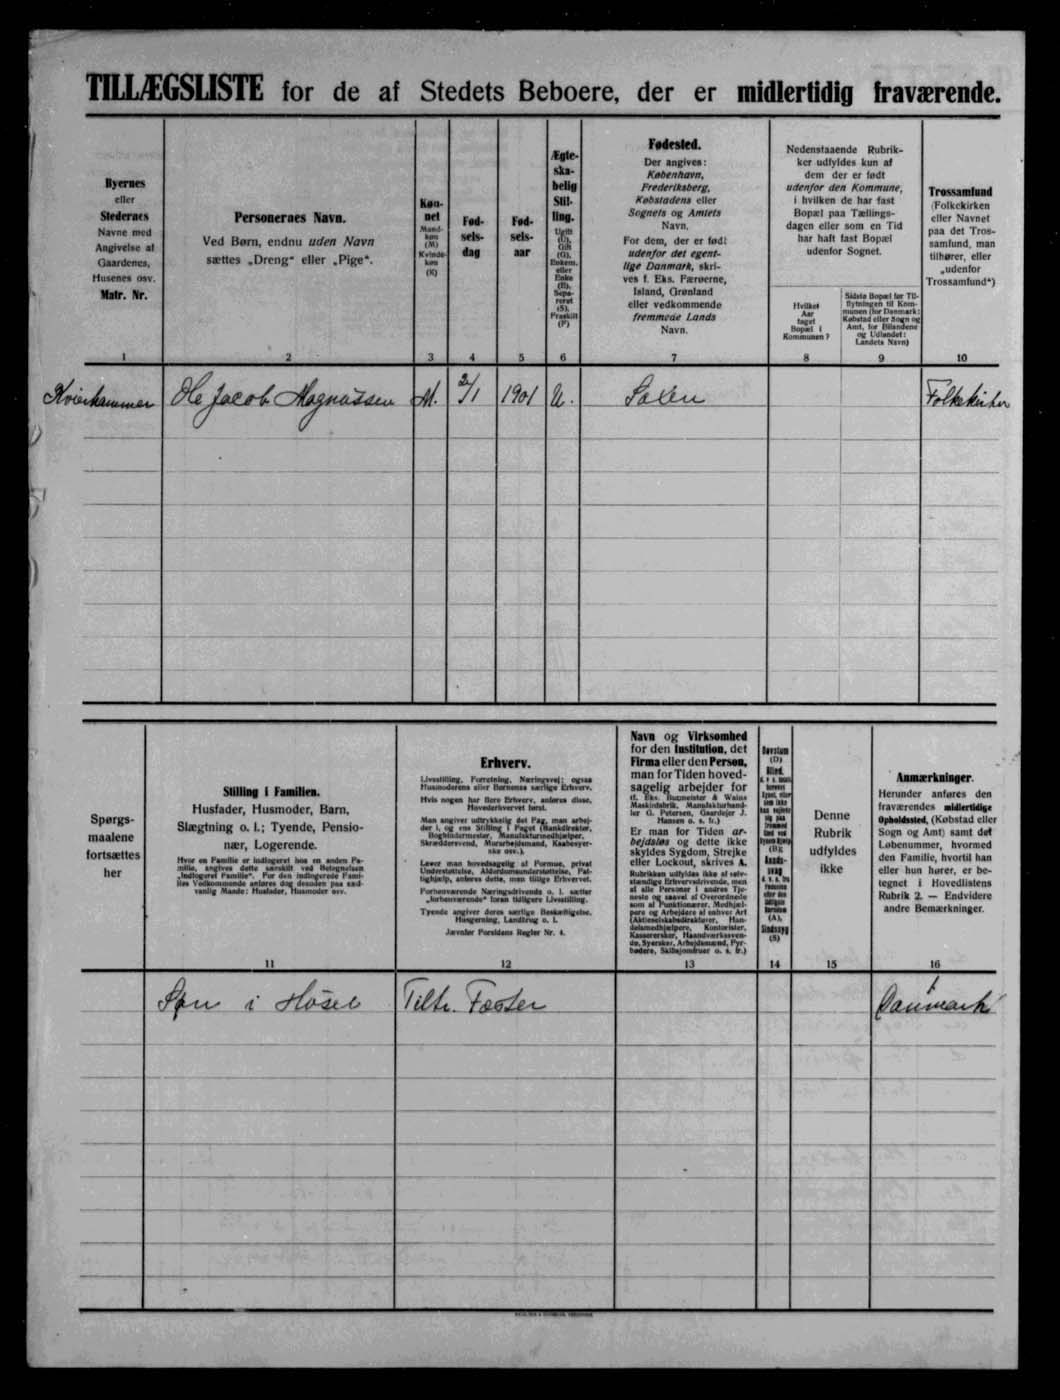 TILLÆGSLISTE for de af Stedets Beboere, der er midlertidig fraværende.
Byernes
eller
Stedernes
Navne med
Angivelse af
Gaardenes,
Husenes osv.
Matr. Nr.
1
Personernes Navn.
Ved Børn, endnu uden Navn
sættes „Dreng“ eller „Pige“.
2
Køn-
net
Mand-
køn
(M)
Kvinde-
køn
(K)
3
Fød-
sels-
dag
4
Fød-
sels-
aar
5
Ægte-
ska-
belig
Stil-
ling.
Ugift
(U),
Gift
(G),
Enkem.
eller
Enke
(E),
Sepa-
reret
(S),
Fraskilt
(F)
6
Fødested.
Der angives:
København,
Frederiksberg,
Købstadens eller
Sognets og Amtets
Navn.
For dem, der er født
udenfor det egent-
lige Danmark, skri-
ves f. Eks. Færøerne,
Island, Grønland
eller vedkommende
fremmede Lands
Navn.
7
Nedenstaaende Rubrik-
ker udfyldes kun af
dem der er født
udenfor den Kommune,
i hvilken de har fast
Bopæl paa Tællings-
dagen eller som en Tid
har haft fast Bopæl
udenfor Sognet.
Hvilket
Aar
taget
Bopæl i
Kommunen?
8
Sidste Bopæl før Til-
flytningen til Kom-
munen (for Danmark:
Købstad eller Sogn og
Amt, for Bilandene
og Udlandet:
Landets Navn)
9
Trossamfund
(Folkekirken
eller Navnet
paa det Tros-
samfund, man
tilhører, eller
„udenfor
Trossamfund“)
10
Ole Jacob Magnussen M. 2/1 1901 U. Saxen Folkekirken
Spørgs-
maalene
fortsættes
her
Stilling i Familien.
Husfader, Husmoder, Barn,
Slægtning o. l.; Tyende, Pensio-
nær, Logerende.
Hvor en Familie er indlogeret hos en anden Fa-
milie, angives dette særskilt ved Betegnelsen
„indlogeret Familie“. For den indlogerede Fami-
lies Vedkommende anføres dog desuden paa sæd-
vanlig Maade: Husfader, Husmoder osv.
11
Erhverv.
Livsstilling, Forretning, Næringsvej; ogsaa
Husmoderens eller Børnenes særlige Erhverv.
Hvis nogen har flere Erhverv, anføres disse,
Hovederhvervet først.
Man angiver udtrykkelig det Fag, man arbej-
der i, og ens Stilling i Faget (Bankdirektør,
Bogbindermester, Manufakturmedhjælper,
Skræddersvend, Murarbejdsmand, Kaabesyer-
ske osv.).
Lever man hovedsagelig af Formue, privat
Understøttelse, Alderdomsunderstøttelse, Fat-
tighjælp, anføres dette, man tillige Erhvervet.
Forhenværende Næringsdrivende o. l. sætter
„forhenværende“ foran tidligere Livsstilling.
Tyende angiver deres særlige Beskæftigelse,
Husgerning, Landbrug o. l.
Jævnfør Forsidens Regler Nr. 4.
12
Navn og Virksomhed
for den Institution, det
Firma eller den Person,
man for Tiden hoved-
sagelig arbejder for
(f. Eks. Burmeister & Wains
Maskinfabrik, Manufakturhand-
ler G. Petersen, Gaardejer J.
Hansen o. s. fr.)
Er man for Tiden ar-
bejdsløs og dette ikke
skyldes Sygdom, Strejke
eller Lockout, skrives A.
Rubrikken udfyldes ikke af selv-
stændige Erhvervsdrivende, men
af alle Personer i andres Tje-
neste og saavel af Overordnede
som af Funktionærer, Medhjæl-
pere og Arbejdere af enhver Art
(Aktieselskabsdirektører, Han-
delsmedhjælpere, Kontorister,
Kassererser, Haandværkssven-
de, Syersker, Arbejdsmænd, Fyr-
bødere, Skibsjomfruer o. s. fr.)
13
Døvstum
(D)
Blind,
(B);
Aands-
svag
(A),
Sindssyg
(S)
14
Denne
Rubrik
udfyldes
ikke
15
Anmærkninger.
Herunder anføres den
fraværendes midlertidige
Opholdssted, (Købstad eller
Sogn og Amt) samt det
Løbenummer, hvormed
den Familie, hvortil han
eller hun hører, er be-
tegnet i Hovedlistens
Rubrik 2. — Endvidere
andre Bemærkninger.
16
Søn i Huset Tiltr. Fæster Danmark